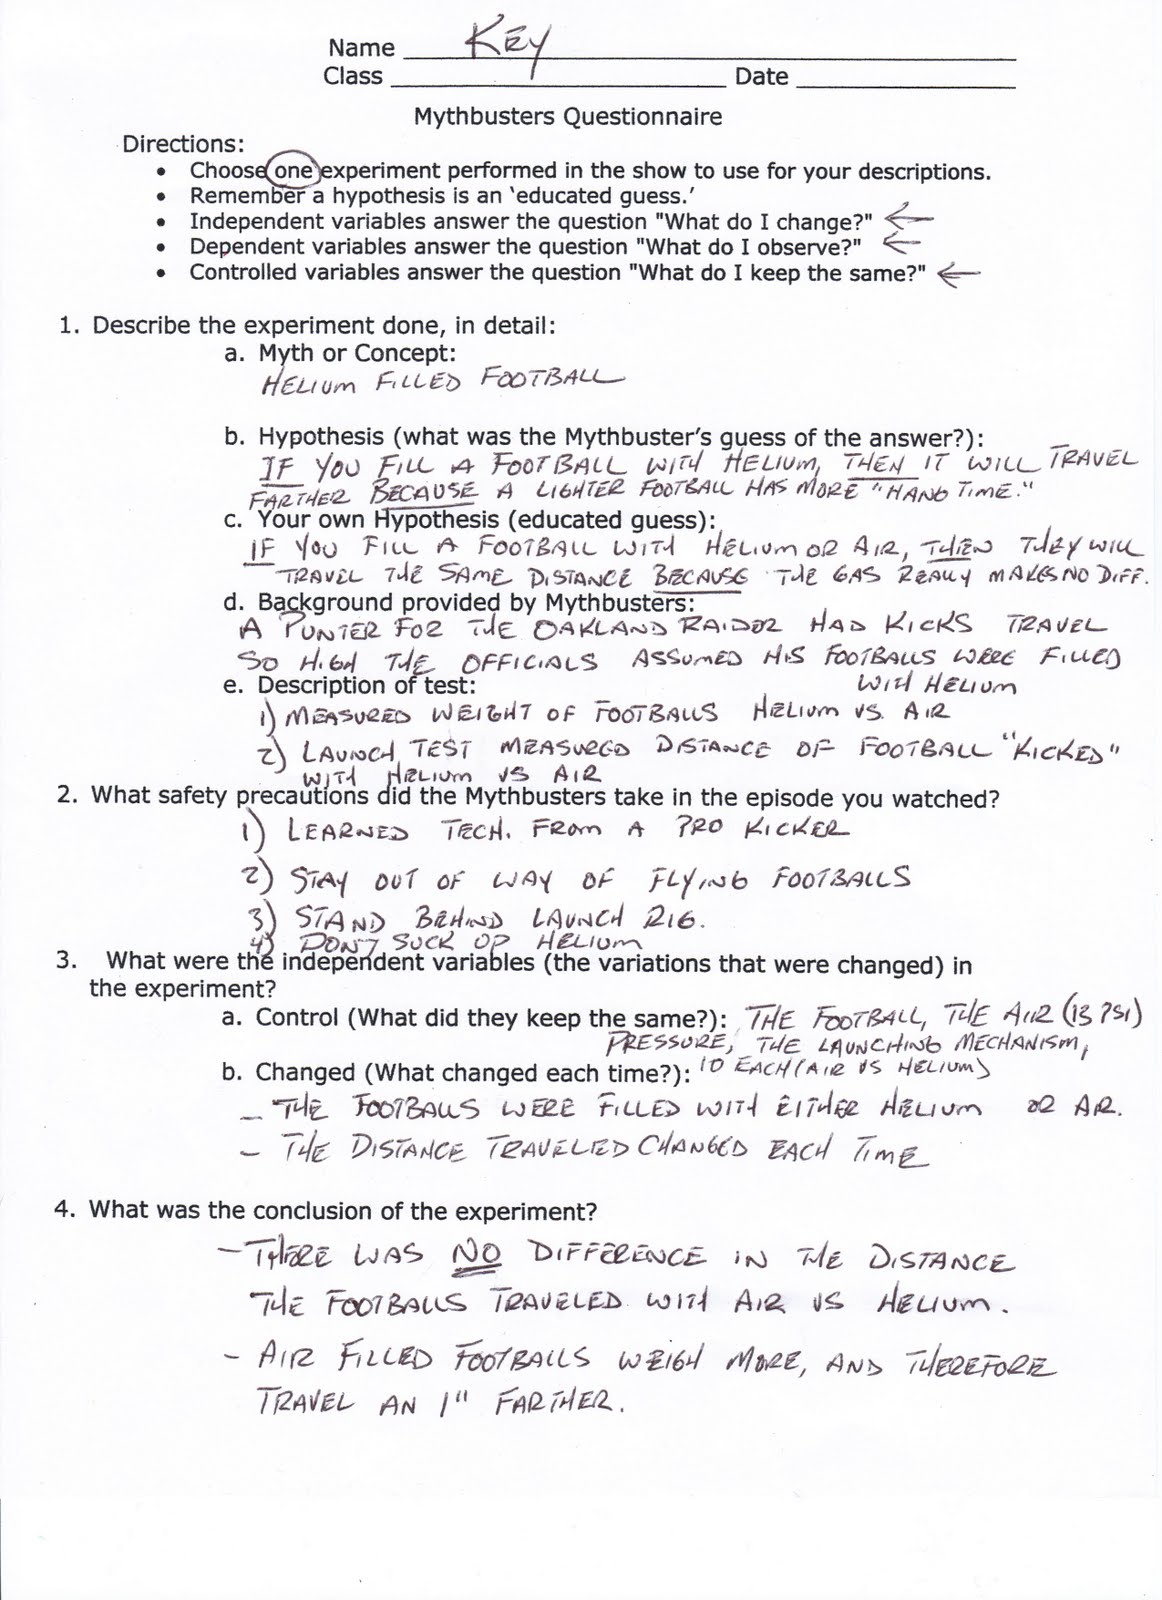 Name KEY
Class Date
Mythbusters Questionnaire
Directions:
• Choose one experiment performed in the show to use for your descriptions.
• Remember a hypothesis is an ‘educated guess.’
• Independent variables answer the question "What do I change?" ←
• Dependent variables answer the question "What do I observe?" ←
• Controlled variables answer the question "What do I keep the same?" ←
1. Describe the experiment done, in detail:
a. Myth or Concept:
HELIUM FILLED FOOTBALL
b. Hypothesis (what was the Mythbuster's guess of the answer?):
IF YOU FILL A FOOTBALL WITH HELIUM, THEN IT WILL TRAVEL
FARTHER BECAUSE A LIGHTER FOOTBALL HAS MORE "HANG TIME."
c. Your own Hypothesis (educated guess):
IF YOU FILL A FOOTBALL WITH HELIUM OR AIR, THEN THEY WILL
TRAVEL THE SAME DISTANCE BECAUSE THE GAS REALLY MAKES NO DIFF.
d. Background provided by Mythbusters:
A PUNTER FOR THE OAKLAND RAIDER HAD KICKS TRAVEL
SO HIGH THE OFFICIALS ASSUMED HIS FOOTBALLS WERE FILLED
WITH HELIUM
e. Description of test:
1) MEASURED WEIGHT OF FOOTBALLS HELIUM VS. AIR
2) LAUNCH TEST MEASURED DISTANCE OF FOOTBALL "KICKED"
WITH HELIUM VS AIR
2. What safety precautions did the Mythbusters take in the episode you watched?
1) LEARNED TECH. FROM A PRO KICKER
2) STAY OUT OF WAY OF FLYING FOOTBALLS
3) STAND BEHIND LAUNCH RIG.
4) DON'T SUCK UP HELIUM
3. What were the independent variables (the variations that were changed) in
the experiment?
a. Control (What did they keep the same?): THE FOOTBALL, THE AIR (13 PSI)
PRESSURE, THE LAUNCHING MECHANISM,
10 EACH (AIR VS HELIUM)
b. Changed (What changed each time?):
- THE FOOTBALLS WERE FILLED WITH EITHER HELIUM OR AIR.
- THE DISTANCE TRAVELED CHANGED EACH TIME
4. What was the conclusion of the experiment?
- THERE WAS NO DIFFERENCE IN THE DISTANCE
THE FOOTBALLS TRAVELED WITH AIR VS HELIUM.
- AIR FILLED FOOTBALLS WEIGH MORE, AND THEREFORE
TRAVEL AN 1" FARTHER.